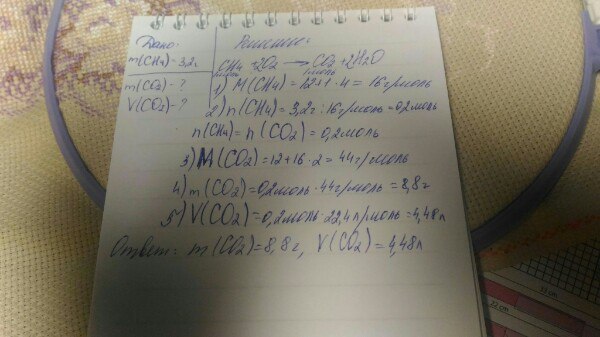 Дано:
m(CH4) = 3,2г
m(CO2) - ?
V(CO2) - ?
Решение:
CH4 + 2O2 → CO2 + 2H2O
1моль 1моль
1) M(CH4) = 12+1·4 = 16г/моль
2) n(CH4) = 3,2г : 16г/моль = 0,2моль
n(CH4) = n(CO2) = 0,2моль
3) M(CO2) = 12+16·2 = 44г/моль
4) m(CO2) = 0,2моль·44г/моль = 8,8г
5) V(CO2) = 0,2моль·22,4л/моль = 4,48л
Ответ: m(CO2) = 8,8г, V(CO2) = 4,48л
11 cm
22 cm